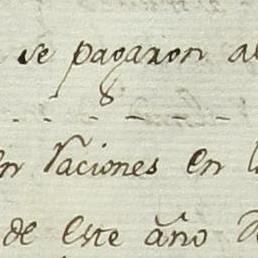 se pagaron al
8
en raciones en l
de este año d